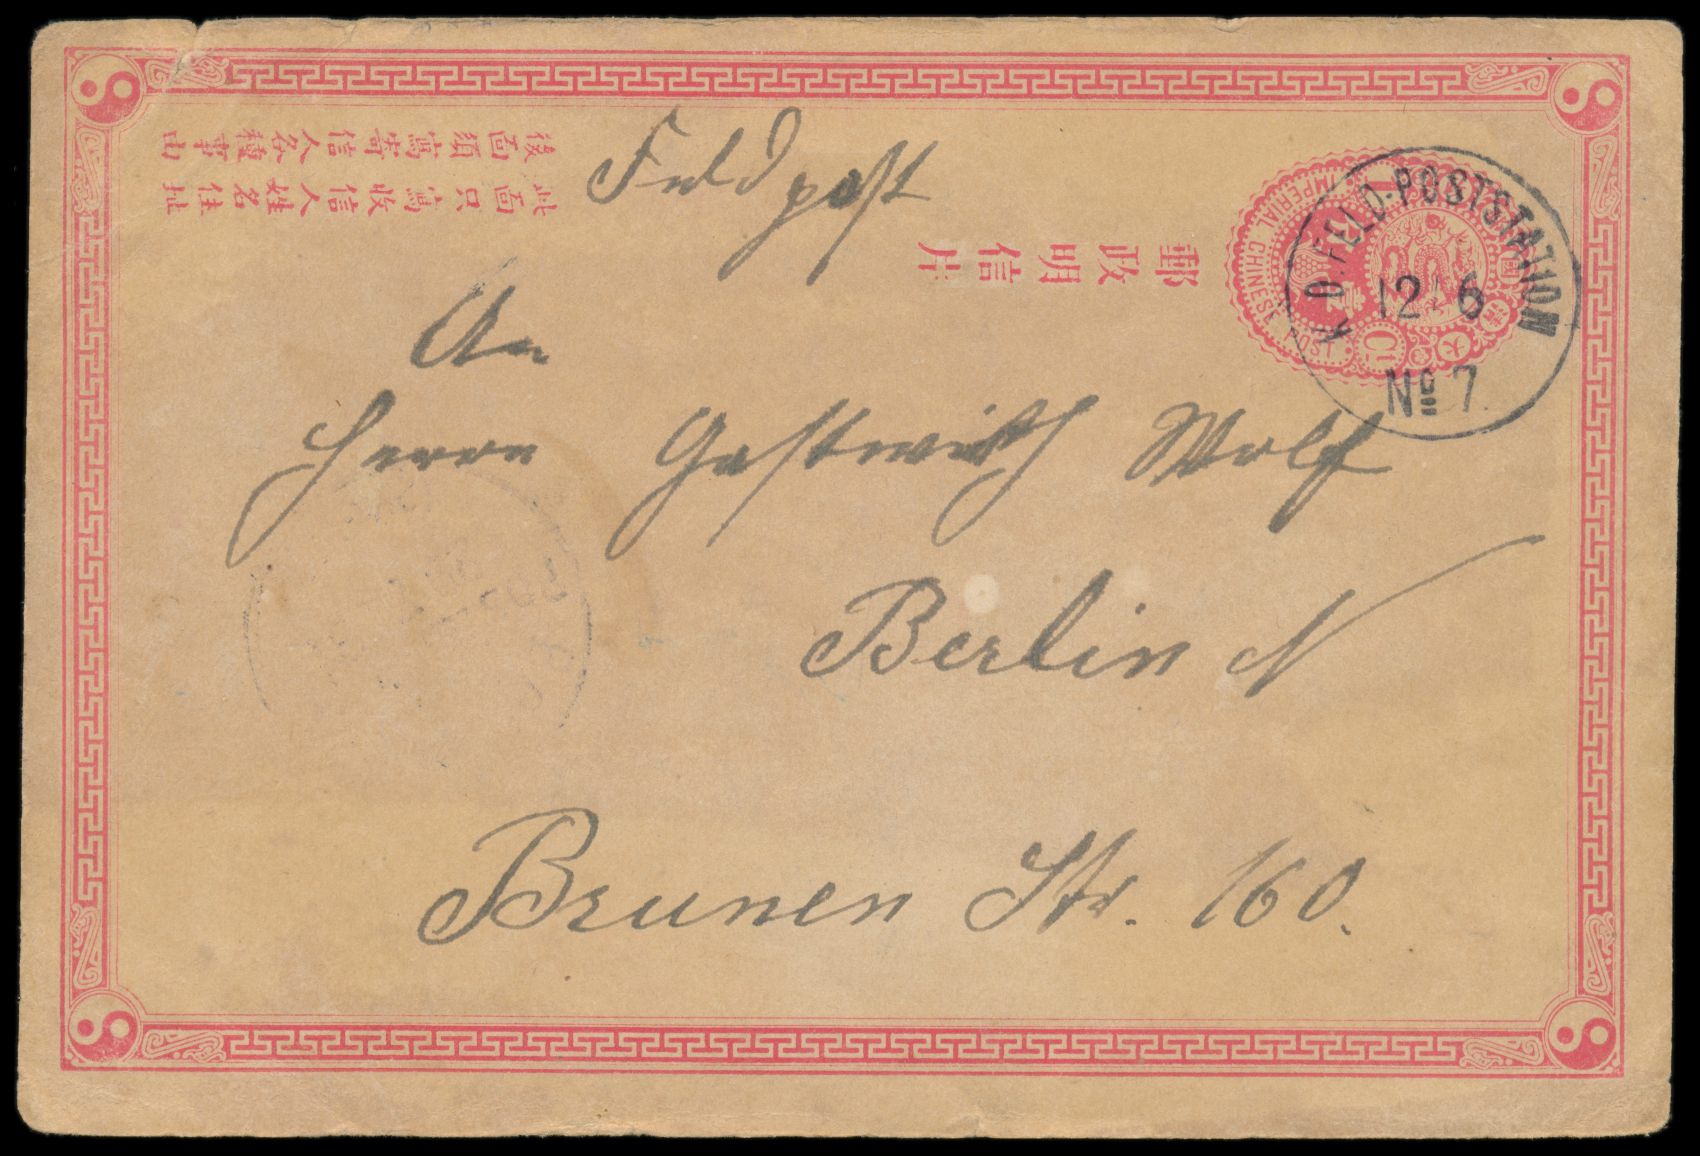 Feldpost
後面須寫寄信人各種事由
此面只寫收信人姓名住址
郵政明信片
IMPERIAL CHINESE POST
1
K.D.FELD-POSTSTATION
12/6
No 7.
An
Herrn Gastwirth Wolf
Berlin N
Brunen Str. 160.